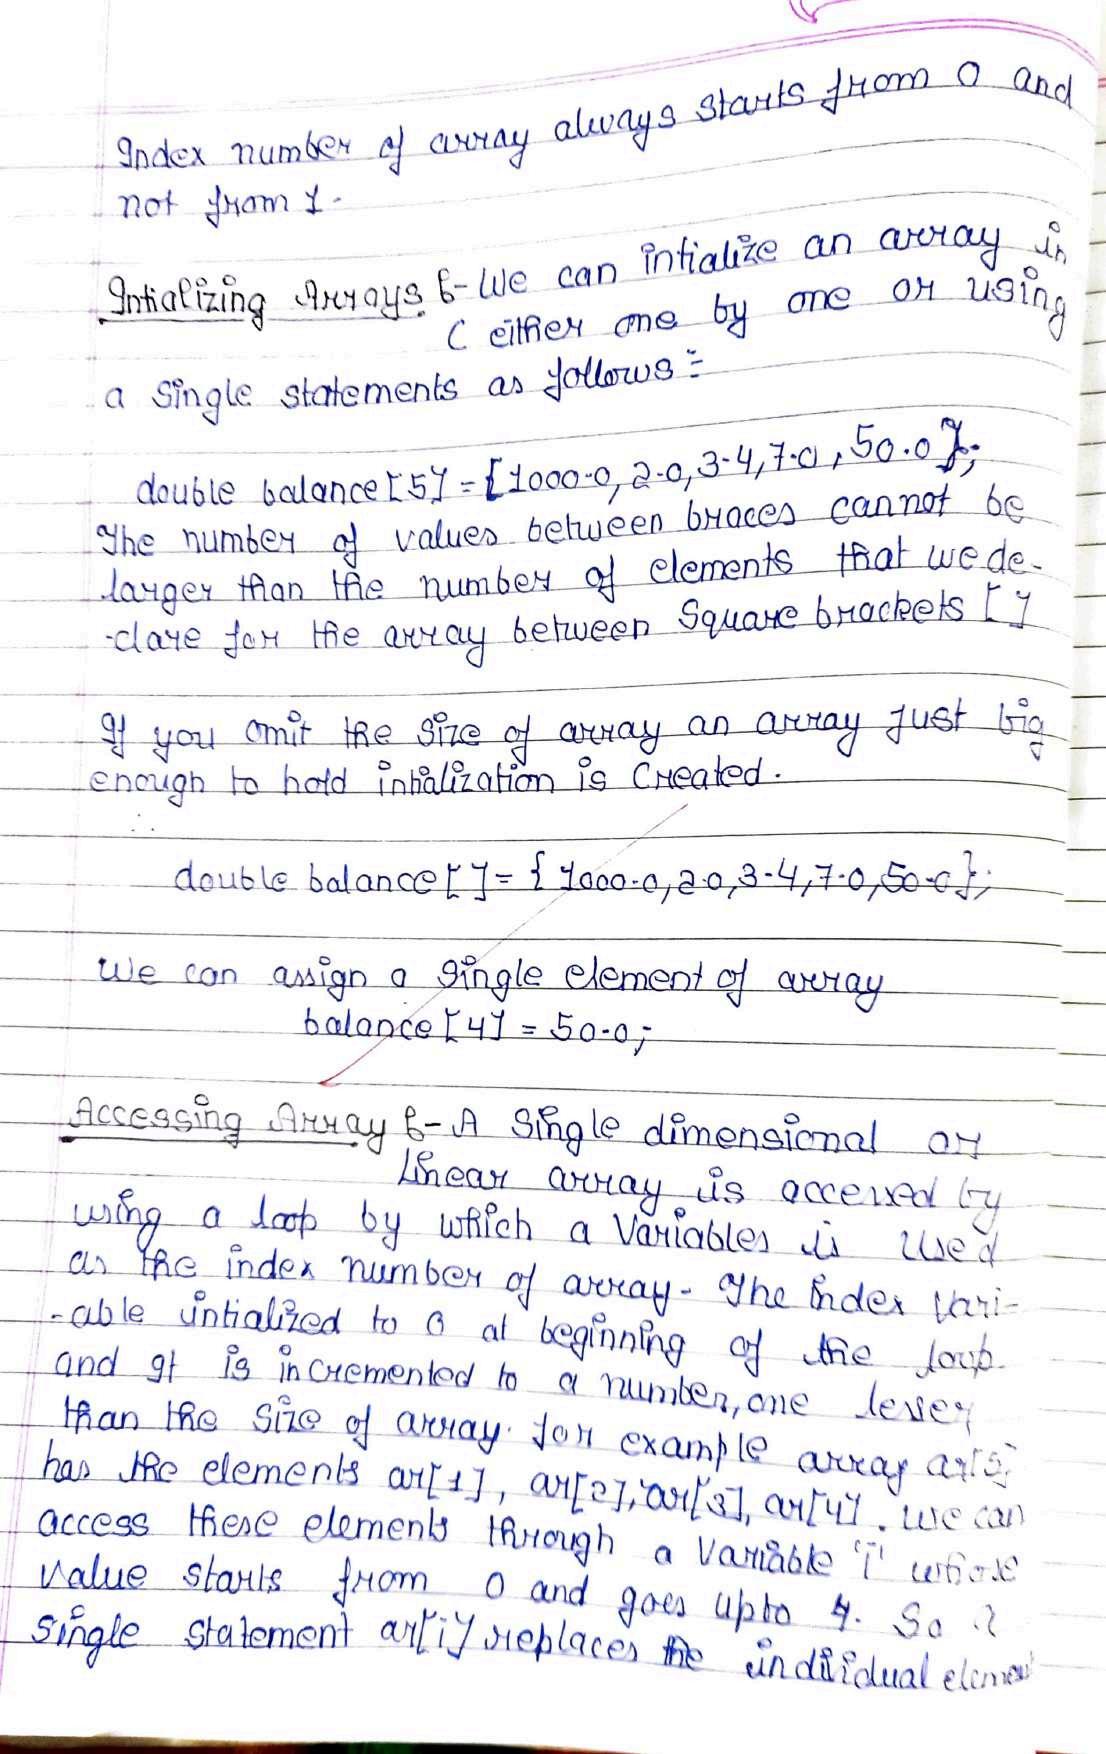 Index number of array always starts from 0 and
not from 1.
Intializing Arrays :- We can intialize an array in
C either one by one or using
a single statements as follows :-
double balance[5] = {1000.0, 2.0, 3.4, 7.0, 50.0};
The number of values between braces cannot be
larger than the number of elements that we de-
-clare for the array between square brackets [ ]
If you omit the size of array an array just big
enough to hold intialization is created.
double balance[ ] = {1000.0, 2.0, 3.4, 7.0, 50.0};
We can assign a single element of array
balance[4] = 50.0;
Accessing Array :- A single dimensional or
linear array is accessed by
using a loop by which a variables is used
as the index number of array. The index vari-
-able intialized to 0 at beginning of the loop
and It is incremented to a number, one lesser
than the size of array. for example array ar[5]
has the elements ar[1], ar[2], ar[3], ar[4]. We can
access these elements through a variable 'i' whose
value starts from 0 and goes upto 4. So a
single statement ar[i] replaces the individual element